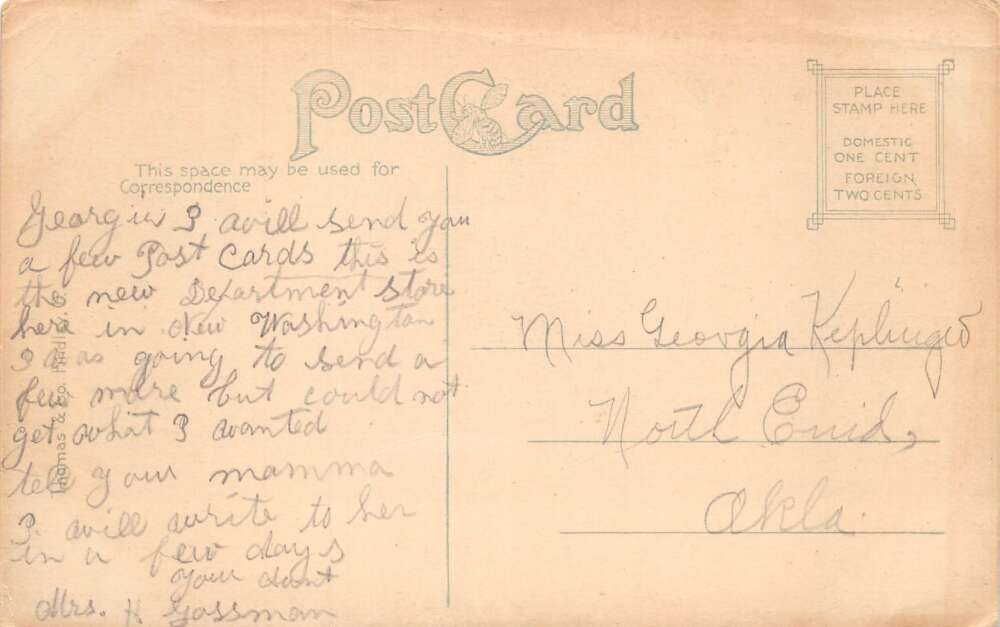 Post Card
PLACE
STAMP HERE
DOMESTIC
ONE CENT
FOREIGN
TWO CENTS
This space may be used for
Correspondence
Georgia I will send you
a few Post Cards this is
the new Department store
here in New Washington
I was going to send a
few more but could not
get what I wanted
tell your mamma
I will write to her
in a few days
your aunt
Mrs. H Gassman
Miss Georgia Keplinger
North Enid,
Okla.
Thomas & Co.